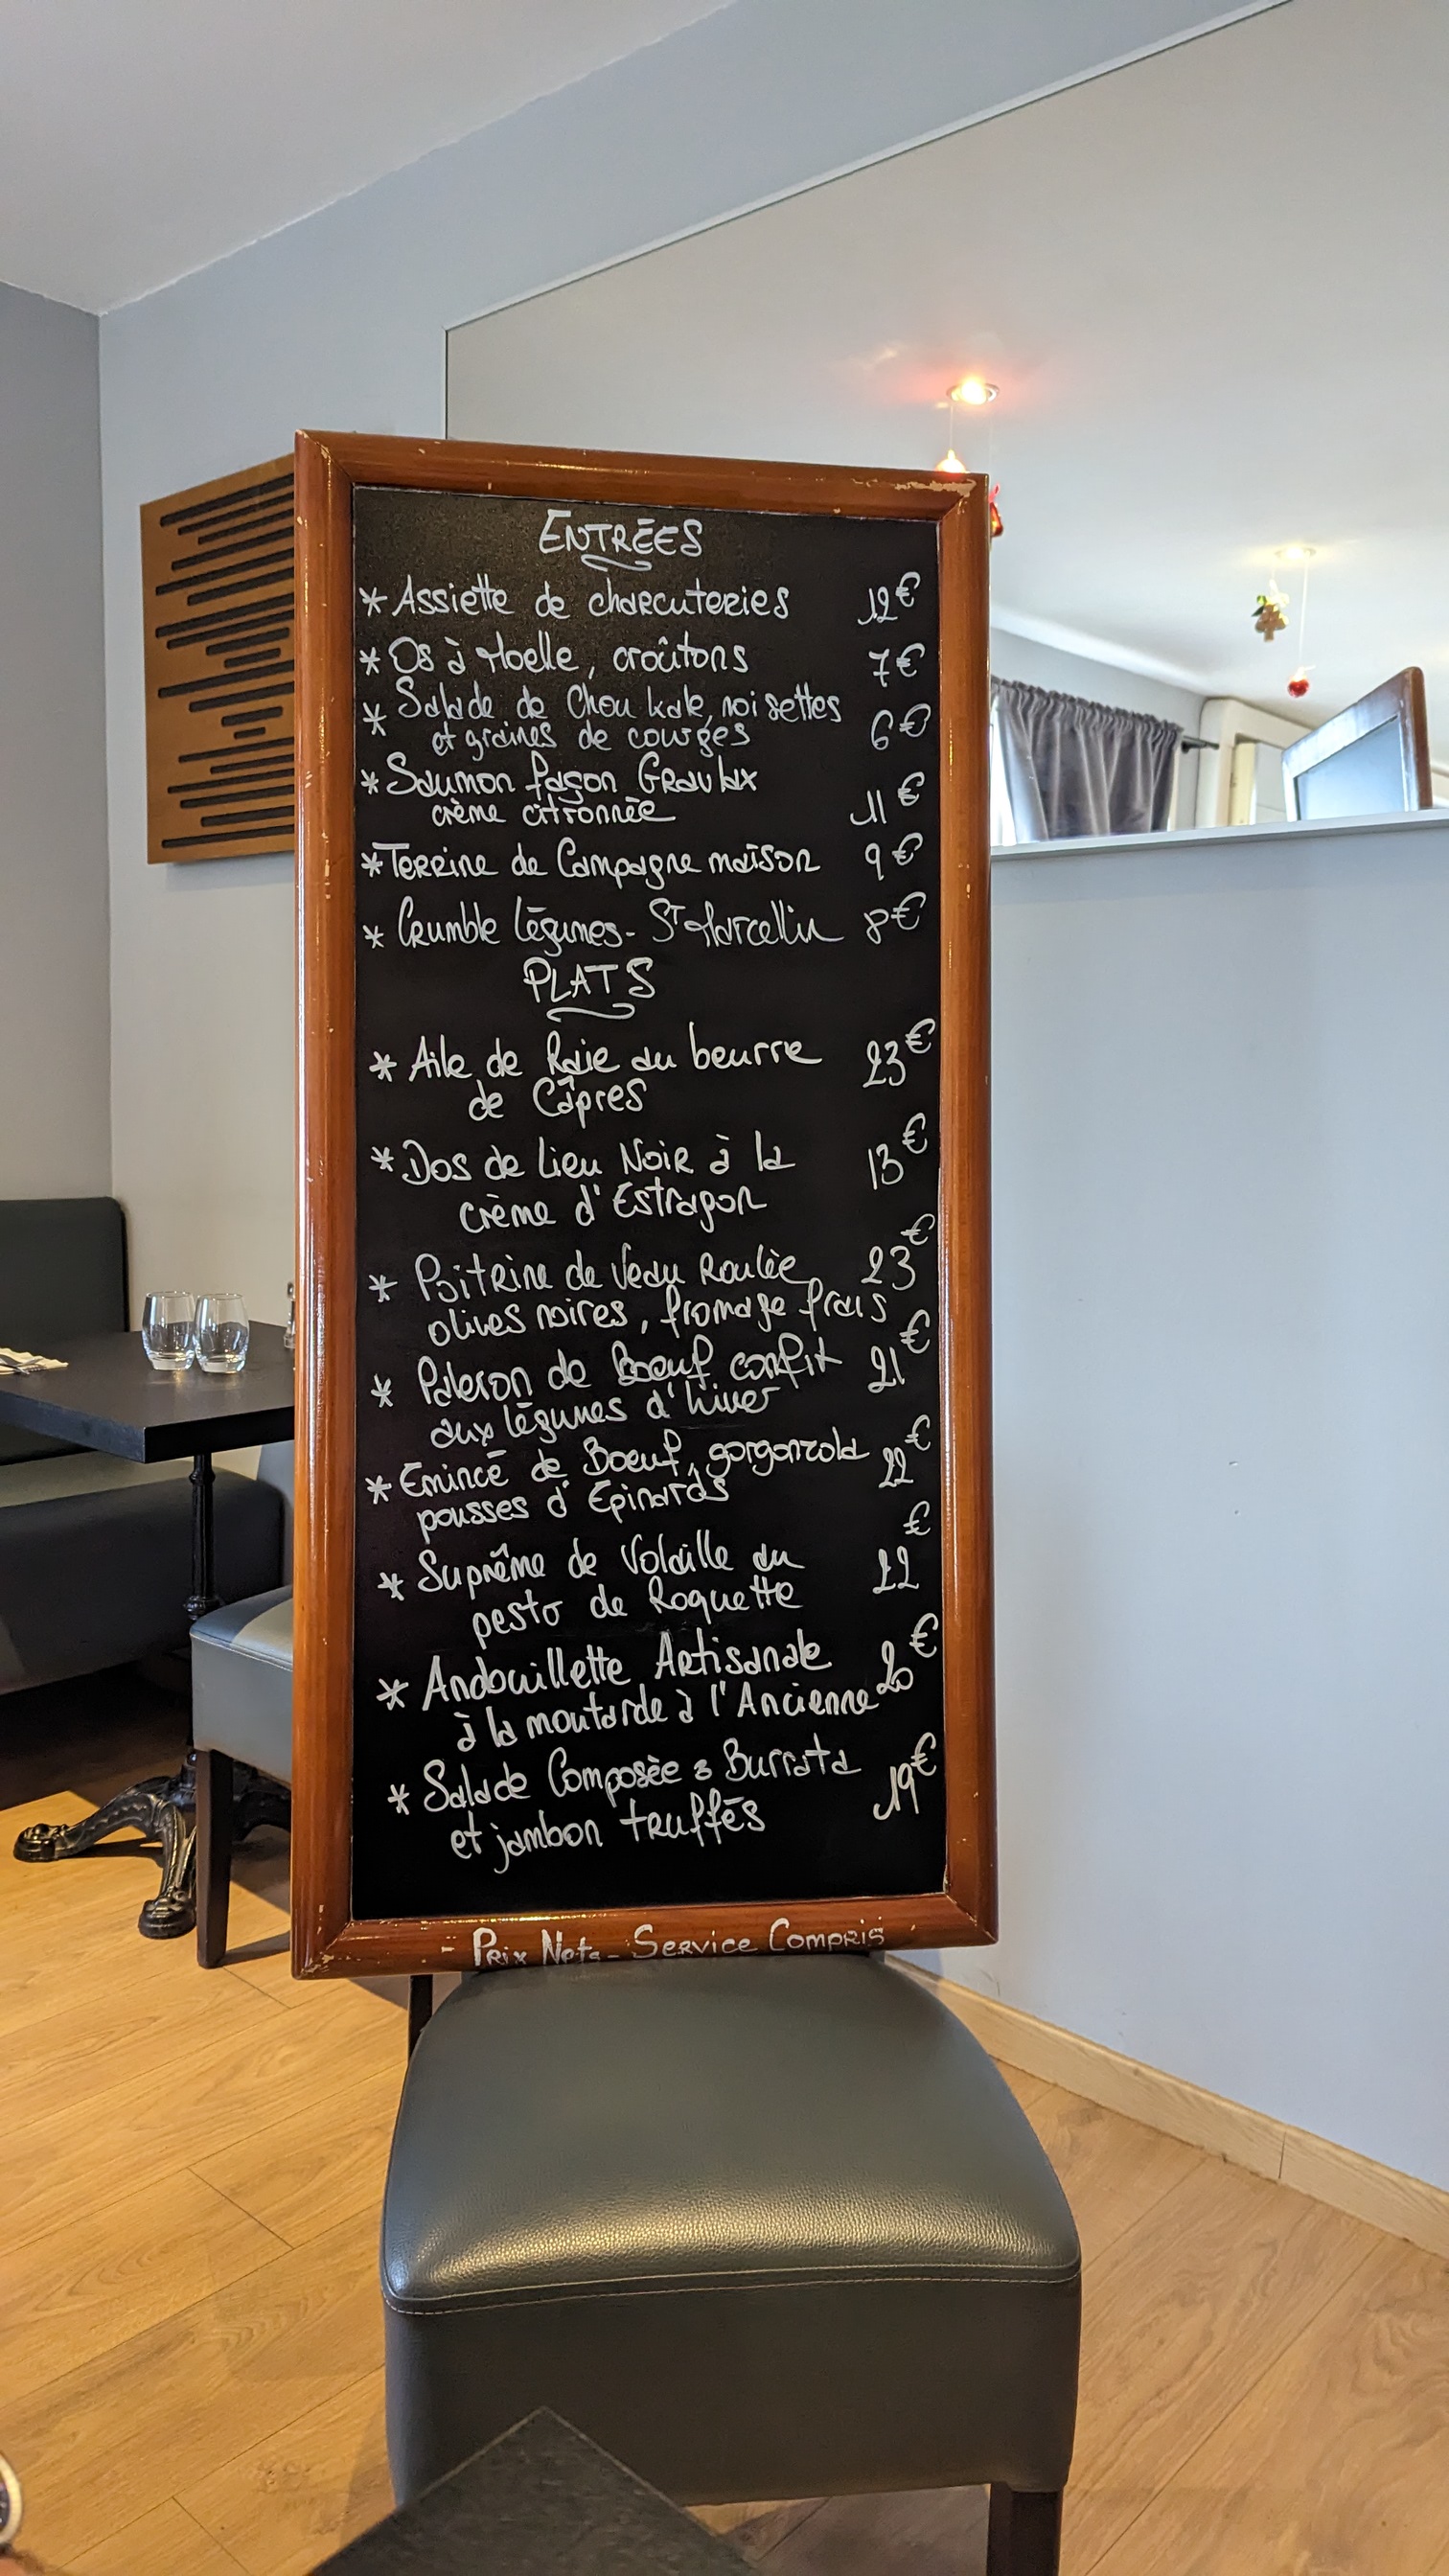 ENTRÉES
* Assiette de charcuteries 12€
* Os à Moelle, croûtons 7€
* Salade de Chou kale, noisettes
et graines de courges 6€
* Saumon façon Gravlax
crème citronnée 11€
* Terrine de Campagne maison 9€
* Crumble légumes - St Marcellin 8€
PLATS
* Aile de Raie au beurre 23€
de Câpres
* Dos de Lieu Noir à la 13€
crème d'Estragon
* Poitrine de Veau Roulée 23€
olives noires, fromage frais
* Paleron de Boeuf confit 21€
aux légumes d'hiver
* Emincé de Boeuf, gorgonzola 22€
pousses d'Epinards
* Suprême de Volaille au 22€
pesto de Roquette
* Andouillette Artisanale 20€
à la moutarde à l'Ancienne
* Salade Composée & Burrata 19€
et jambon truffés
- Prix Nets - Service Compris